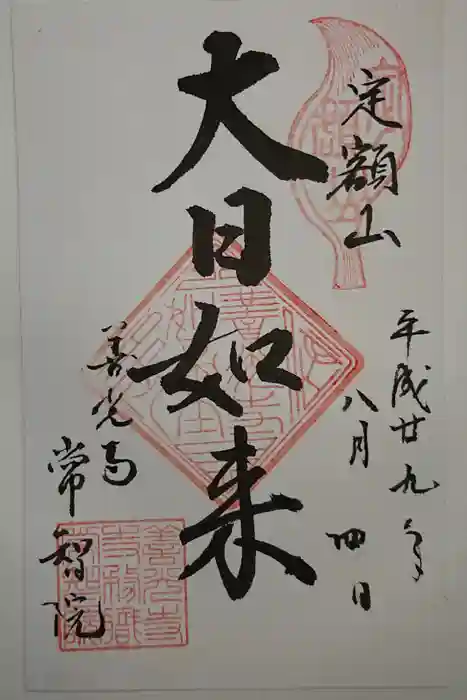 平成廿九年
八月四日
定額山
大日如来
善光寺
常智院
善光寺